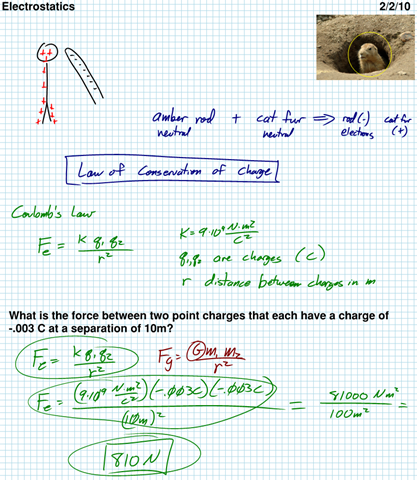 Electrostatics 2/2/10
++
amber rod + cat fur ⟹ rod(-) cat fur
neutral neutral electrons (+)
Law of Conservation of Charge
Coulomb's Law
Fₑ = K q₁ q₂ / r²
K = 9·10⁹ N·m² / C²
q₁, q₂ are charges (C)
r distance between charges in m
What is the force between two point charges that each have a charge of
-.003 C at a separation of 10m?
Fₑ = K q₁ q₂ / r² Fg = G m₁ m₂ / r²
Fₑ = (9·10⁹ N·m² / C²)(-.003C)(-.003C) / (10m)² = 81000 Nm² / 100m² =
810 N